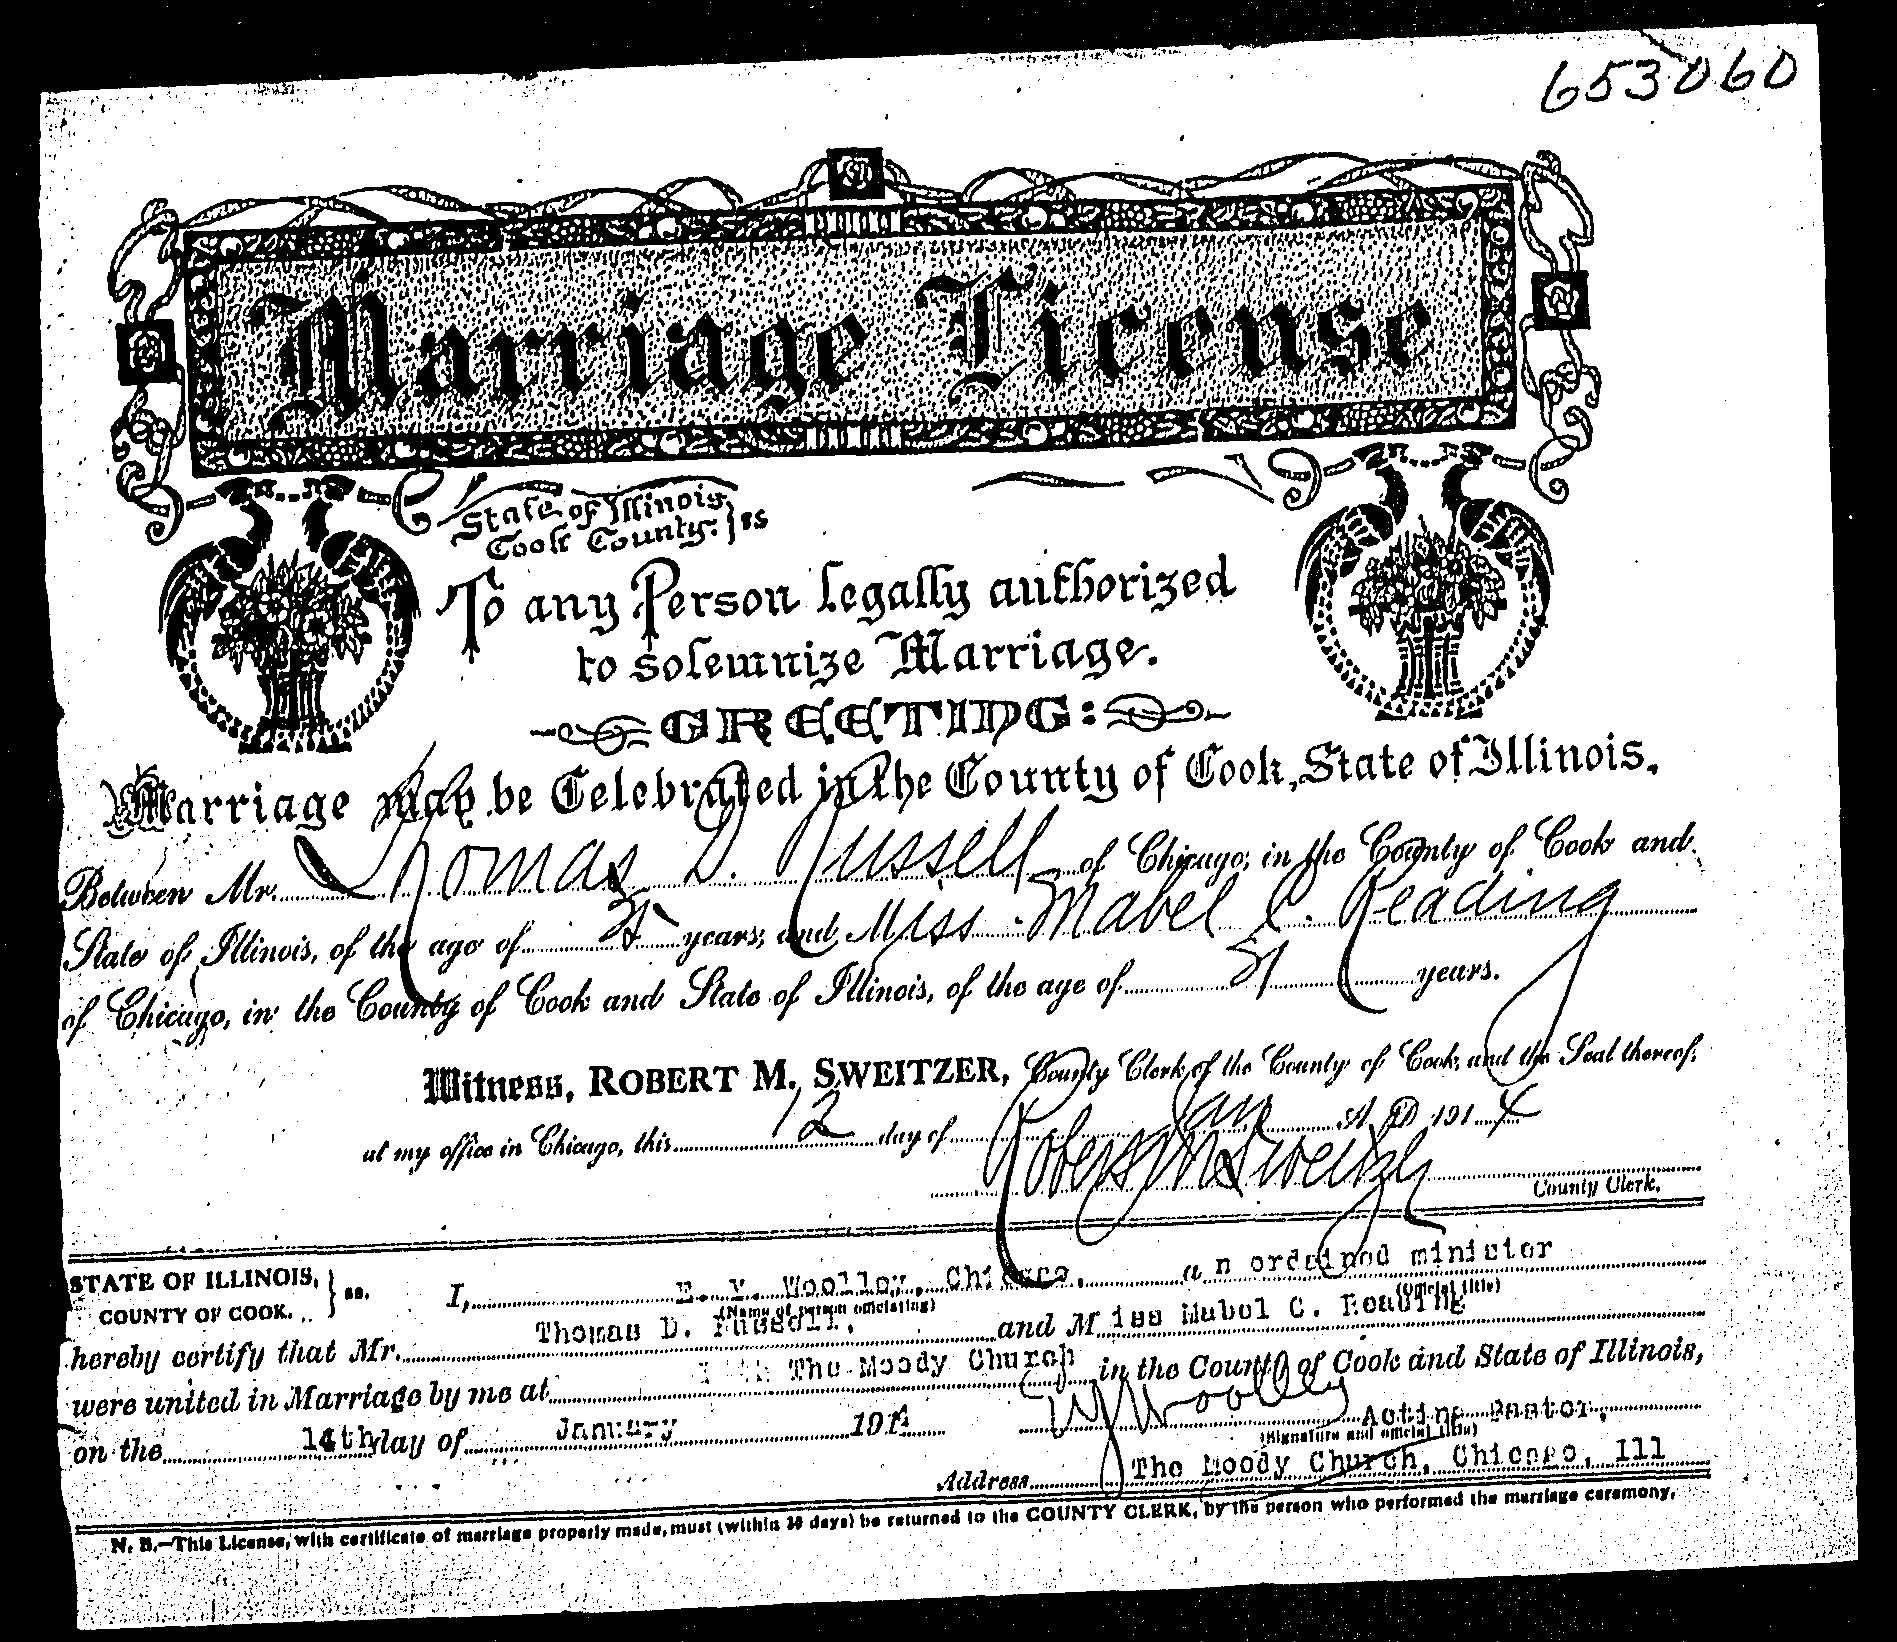 653060
Marriage License
State of Illinois
Cook County. } ss
To any Person legally authorized
to solemnize Marriage.
GREETING:
Marriage may be Celebrated in the County of Cook, State of Illinois,
Between Mr. Thomas D. Russell of Chicago, in the County of Cook and
State of Illinois, of the age of years, and Miss Mabel C. Reading
of Chicago, in the County of Cook and State of Illinois, of the age of years.
Witness, ROBERT M. SWEITZER, County Clerk of the County of Cook, and the Seal thereof,
at my office in Chicago, this 12 day of Jan A. D. 1914
Robert M Sweitzer
County Clerk.
STATE OF ILLINOIS,
COUNTY OF COOK. } ss. I, E. Y. Woolley, Chicago, an ordained minister
(Name of person officiating) (Official title)
hereby certify that Mr. Thomas D. Russell, and Miss Mabel C. Reading
were united in Marriage by me at The Moody Church in the County of Cook and State of Illinois,
on the 14th day of January 1914 E Y Woolley Acting Pastor,
(Signature and official title)
Address The Moody Church, Chicago, Ill
N. B.—This License, with certificate of marriage properly made, must (within 30 days) be returned to the COUNTY CLERK, by the person who performed the marriage ceremony.